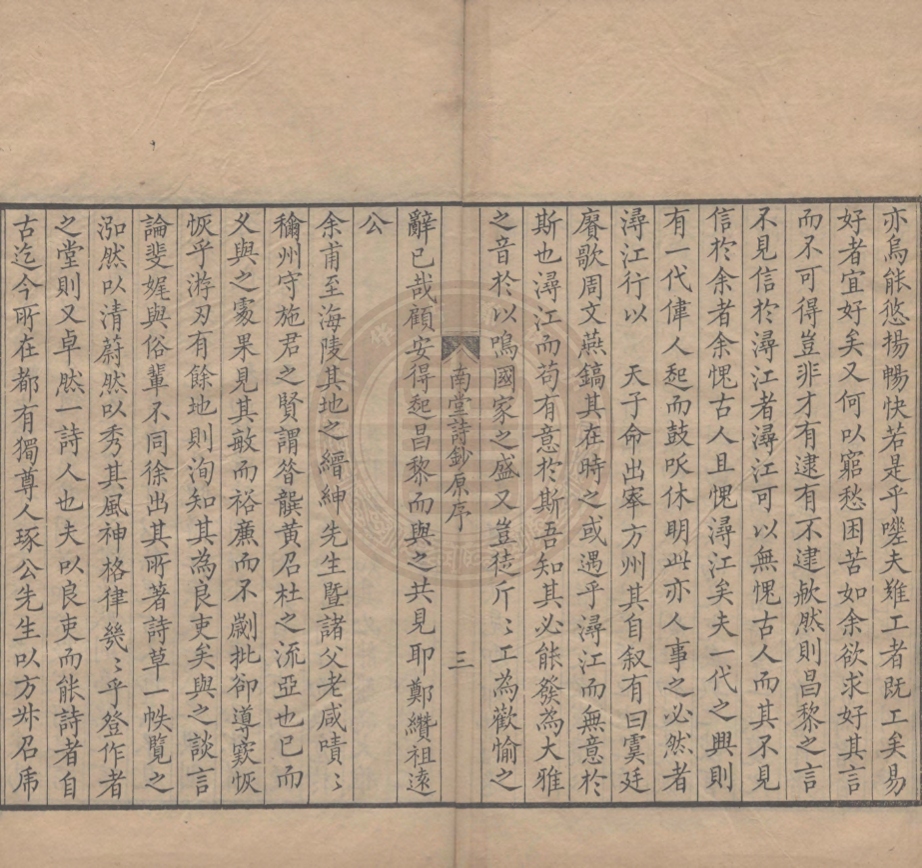 亦烏能悠揚暢快若是乎嗟夫難工者既工矣易
好者宜好矣又何以窮愁困苦如余欲求好其言
而不可得豈非才有逮有不逮歟然則昌黎之言
不見信於潯江者潯江可以無愧古人而其不見
信於余者余愧古人且愧潯江矣夫一代之興則
有一代偉人起而鼓吹休明此亦人事之必然者
潯江行以　天子命出宰方州其自叙有曰虞廷
賡歌周文燕鎬其在時之或遇乎潯江而無意於
斯也潯江而苟有意於斯吾知其必能發為大雅
之音於以鳴國家之盛又豈徒斤〻工為歡愉之
南堂詩鈔原序　三
辭已哉顧安得起昌黎而與之共見耶鄭纘祖遠
公
余甫至海陵其地之縉紳先生暨諸父老咸嘖〻
稱州守施君之賢謂咎龔黃召杜之流亞也已而
乂與之處果見其敏而裕廉而不劌批卻導窾恢
恢乎游刃有餘地則洵知其為良吏矣與之談言
論斐娓與俗輩不同徐出其所著詩草一帙覽之
泓然以清蔚然以秀其風神格律幾〻乎登作者
之堂則又卓然一詩人也夫以良吏而能詩者自
古迄今所在都有獨尊人琢公先生以方州召席